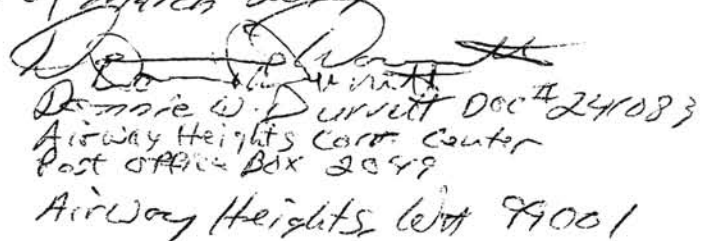 of March
Donnie W. Durrett Doc# 241083
Airway Heights Corr. Center
Post Office Box 2049
Airway Heights, WA 99001